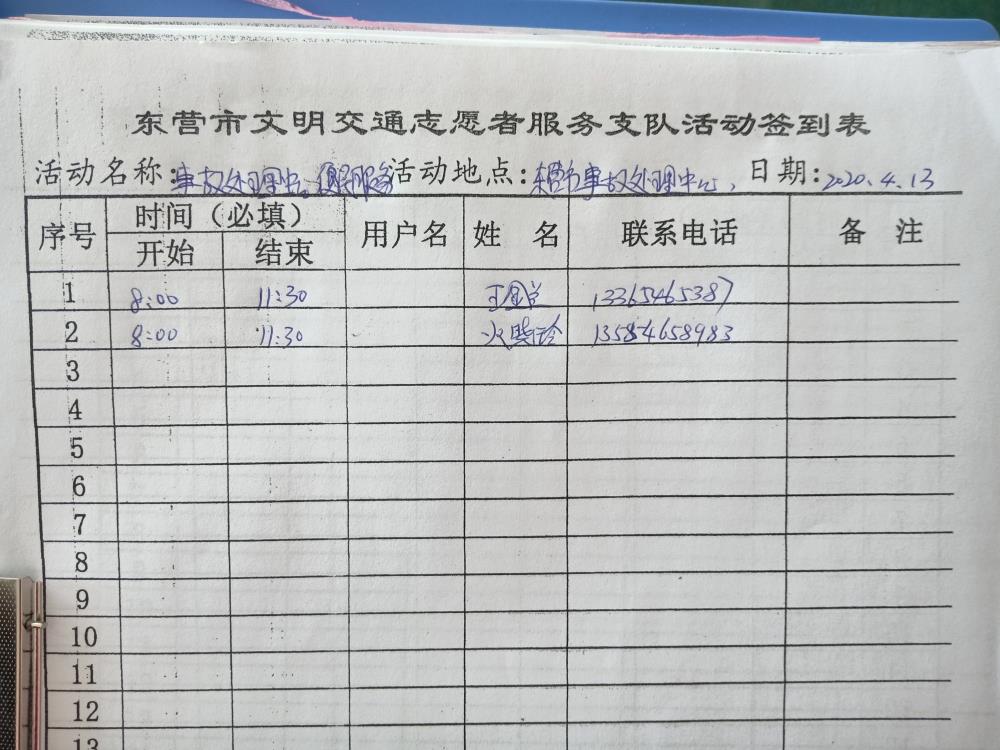 东营市文明交通志愿者服务支队活动签到表
活动名称:事故处理中心 服务 活动地点:东营市事故处理中心, 日期:2020.4.13
序号 时间（必填） 用户名 姓 名 联系电话 备 注
开始 结束
1 8:00 11:30 13365465387
2 8:00 11:30 13584658983
3
4
5
6
7
8
9
10
11
12
13